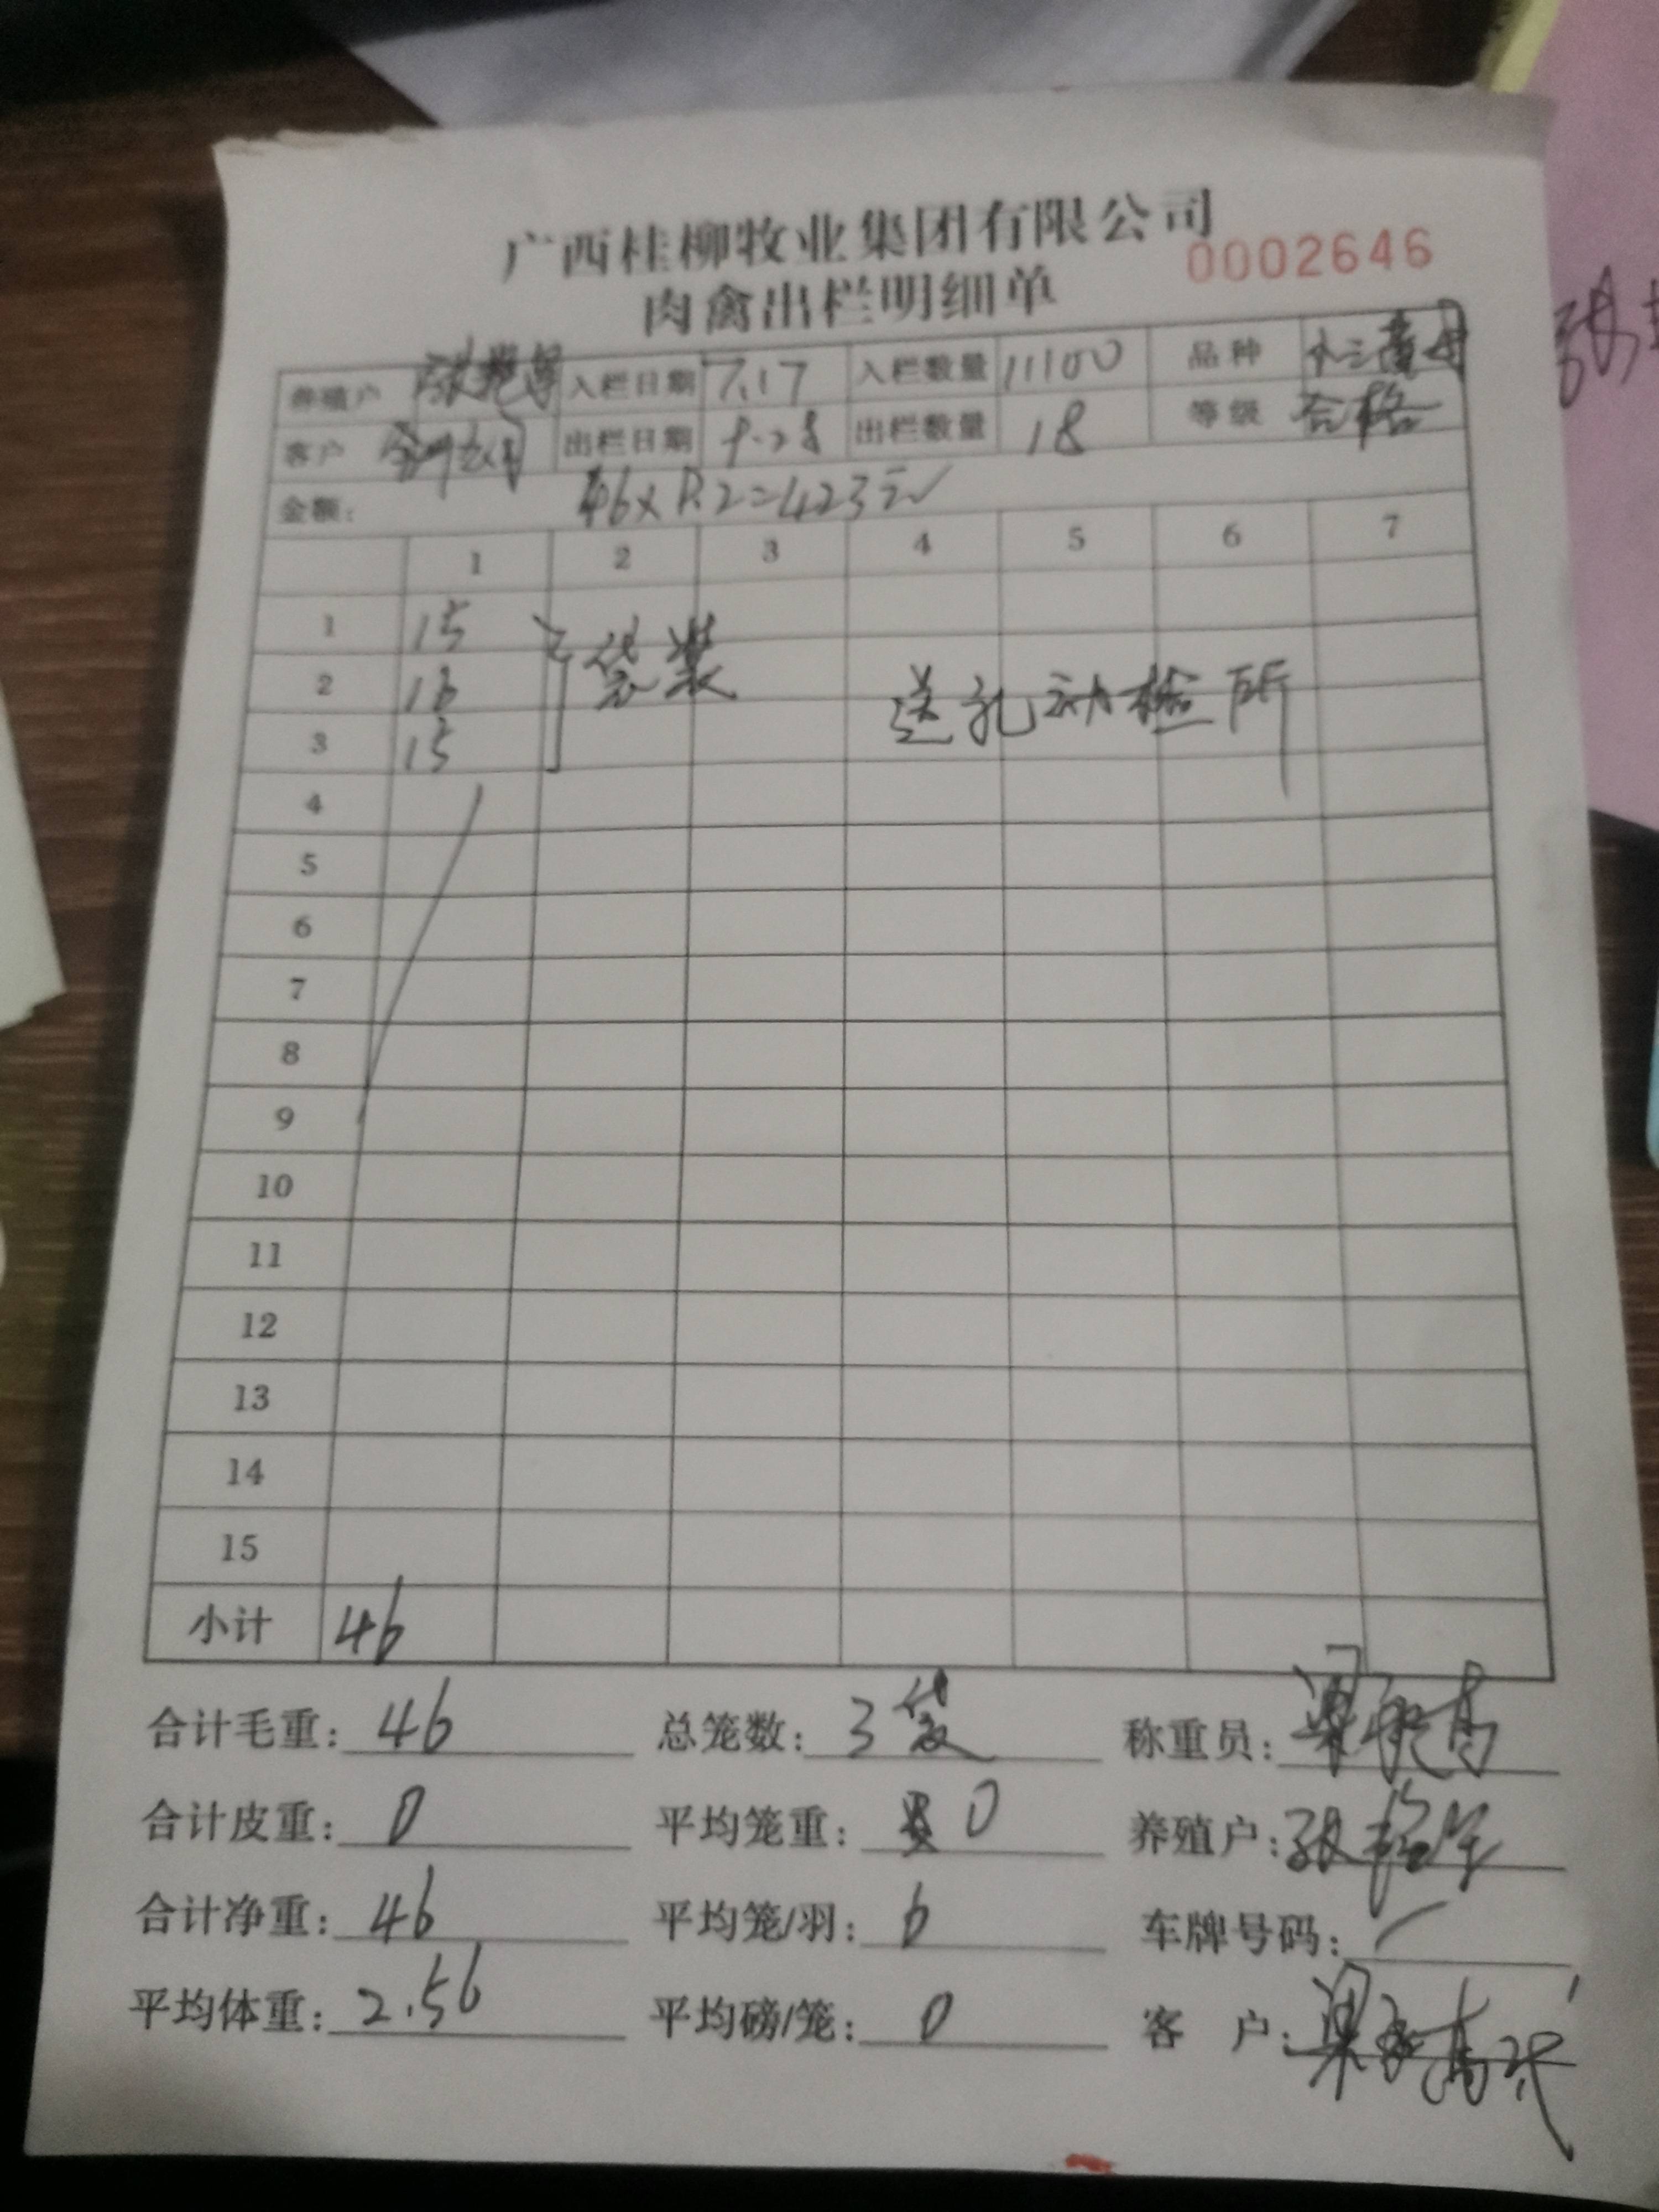 广西桂柳牧业集团有限公司
0002646
肉禽出栏明细单
养殖户 入栏日期 7.17 入栏数量 11100 品种
客户 出栏日期 9-28 出栏数量 18 等级 合格
金额: 46x9.2=423元
1 2 3 4 5 6 7
1 15
2 16 袋装 送 动检所
3 15
4
5
6
7
8
9
10
11
12
13
14
15
小计 46
合计毛重: 46 总笼数: 3袋 称重员:
合计皮重: 0 平均笼重: 0 养殖户:
合计净重: 46 平均笼/羽: 6 车牌号码:
平均体重: 2.56 平均磅/笼: 0 客 户: